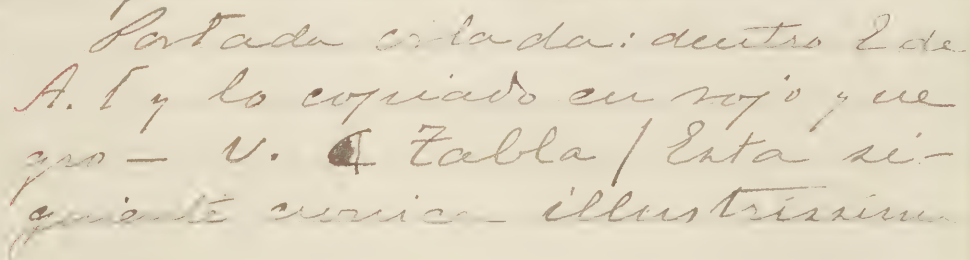 Portada orlada: dentro E de
A. T y lo copiado en rojo y ne
gro — V. Tabla / Esta si-
guiente cronica illustrissim